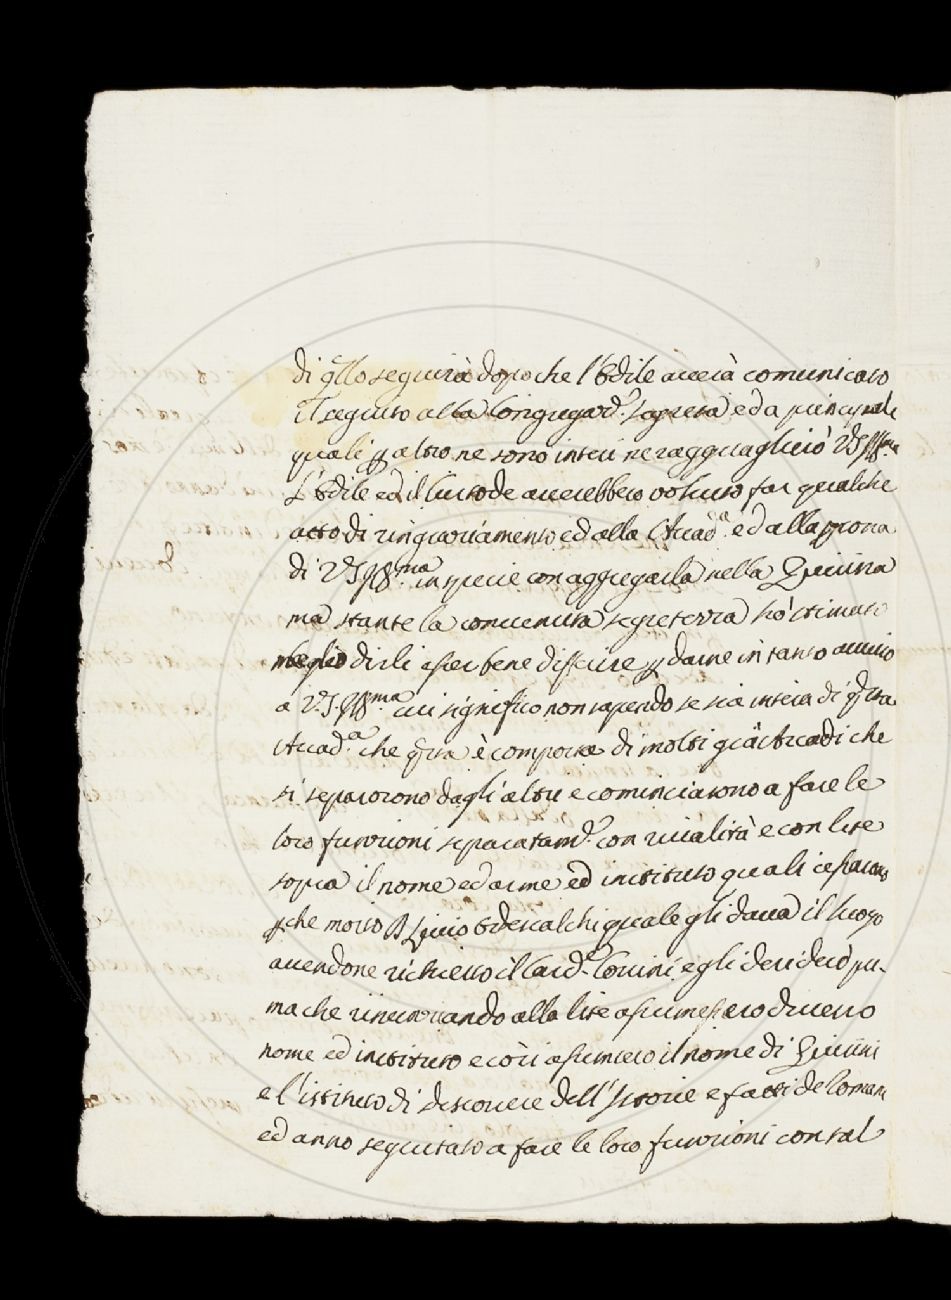 di qllo seguirà dopo che l'Edile averà comunicato
il seguito alla Congregaz.e segreta ed a principali
quali p altro ne sono intesi ne ragguaglierò V.S. Ill.ma
L'Edile ed il Custode averebbero voluto far qualche
atto di ringraziamento ed alla Accad.a ed alla ppria
di V.S. Ill.ma in specie con aggregarla nella Quirina
ma stante la convenuta segretezza hò stimato
meglio dirli esser bene differire p darne in tanto aviso
a V.S. Ill.ma cui significo non sapendo se sia intesa di qsta
Accad.a che qsta è composta di molti già Arcadi che
si separorono dagli altri e cominciarono a fare le
loro funzioni separatam.e con rivalità e con lite
sopra il nome ed arme ed instituto quali cessarono
pche morto D Livio Odescalchi quale gli dava il luogo
avendone richiesto il Card.e Corsini egli desiderò pri-
ma che rinunziando alla lite assumessero diverso
nome ed instituto e così assunsero il nome di Quirini
e l'istituto di descrivere dell'Istorie e fatti de Romani
ed anno seguitato a fare le loro funzioni con tal